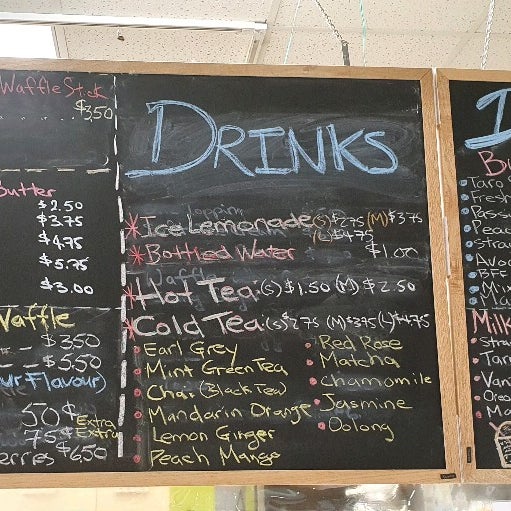 Waffle Stick
$3.50
Butter
$2.50
$3.75
$4.75
$5.75
$3.00
Waffle
$3.50
$5.50
ur Flavour)
50¢ Extra
75¢ Extra
erries $6.50
DRINKS
* Ice Lemonade (S) $2.75 (M) $3.75
(L) $4.75
* Bottled Water $1.00
* Hot Tea: (S) $1.50 (M) $2.50
* Cold Tea: (S) $2.75 (M) $3.75 (L) $4.75
• Earl Grey
• Mint Green Tea
• Chai (Black Tea)
• Mandarin Orange
• Lemon Ginger
• Peach Mango
• Red Rose
• Matcha
• chamomile
• Jasmine
• Oolong
Bu
• Taro
• Fresh
• Pass
• Peac
• Stra
• Avo
• BFF
• Mix
• Ma
Milk
• Stra
• Taro
• Van
• Oreo
• Ma